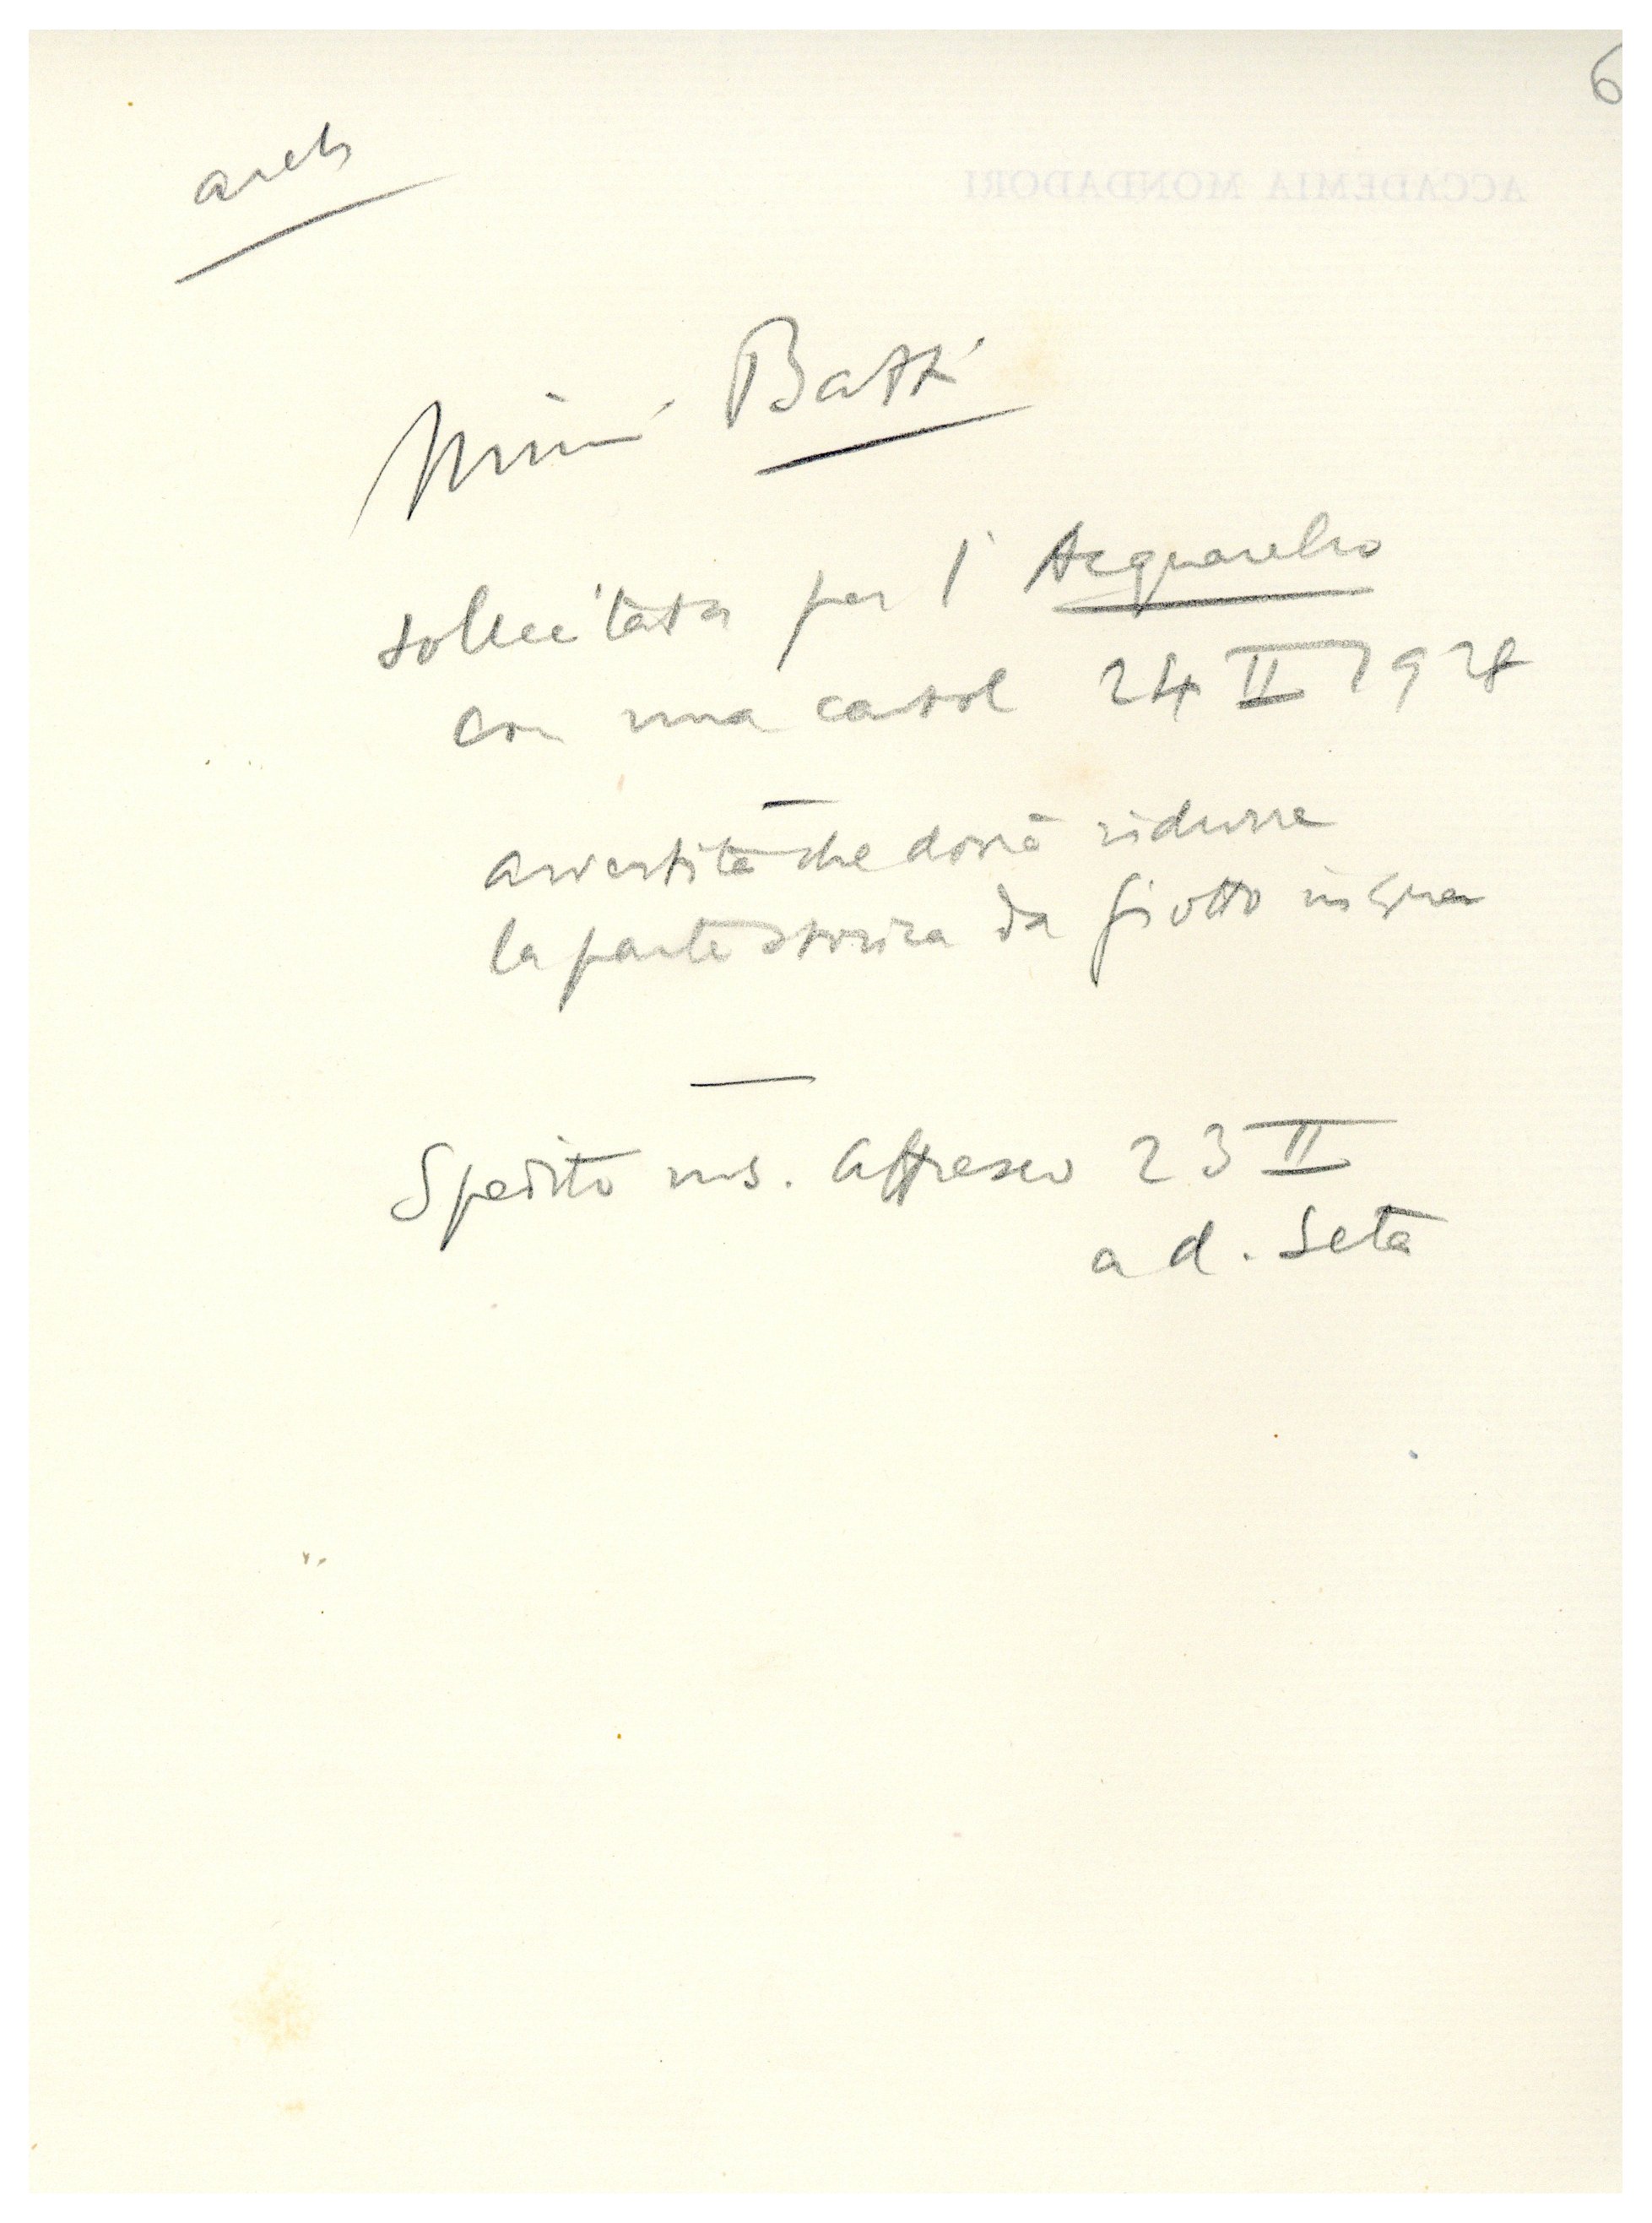 6
ACCADEMIA MONDADORI
arch
Mimi Batti
sollecitata per l'Acquarello
con una cartol 24 II 1928
avvertita che dovrà ridurre
la parte storica da Giotto in qua
Spedito ms. affresco 23 II
a d. Seta